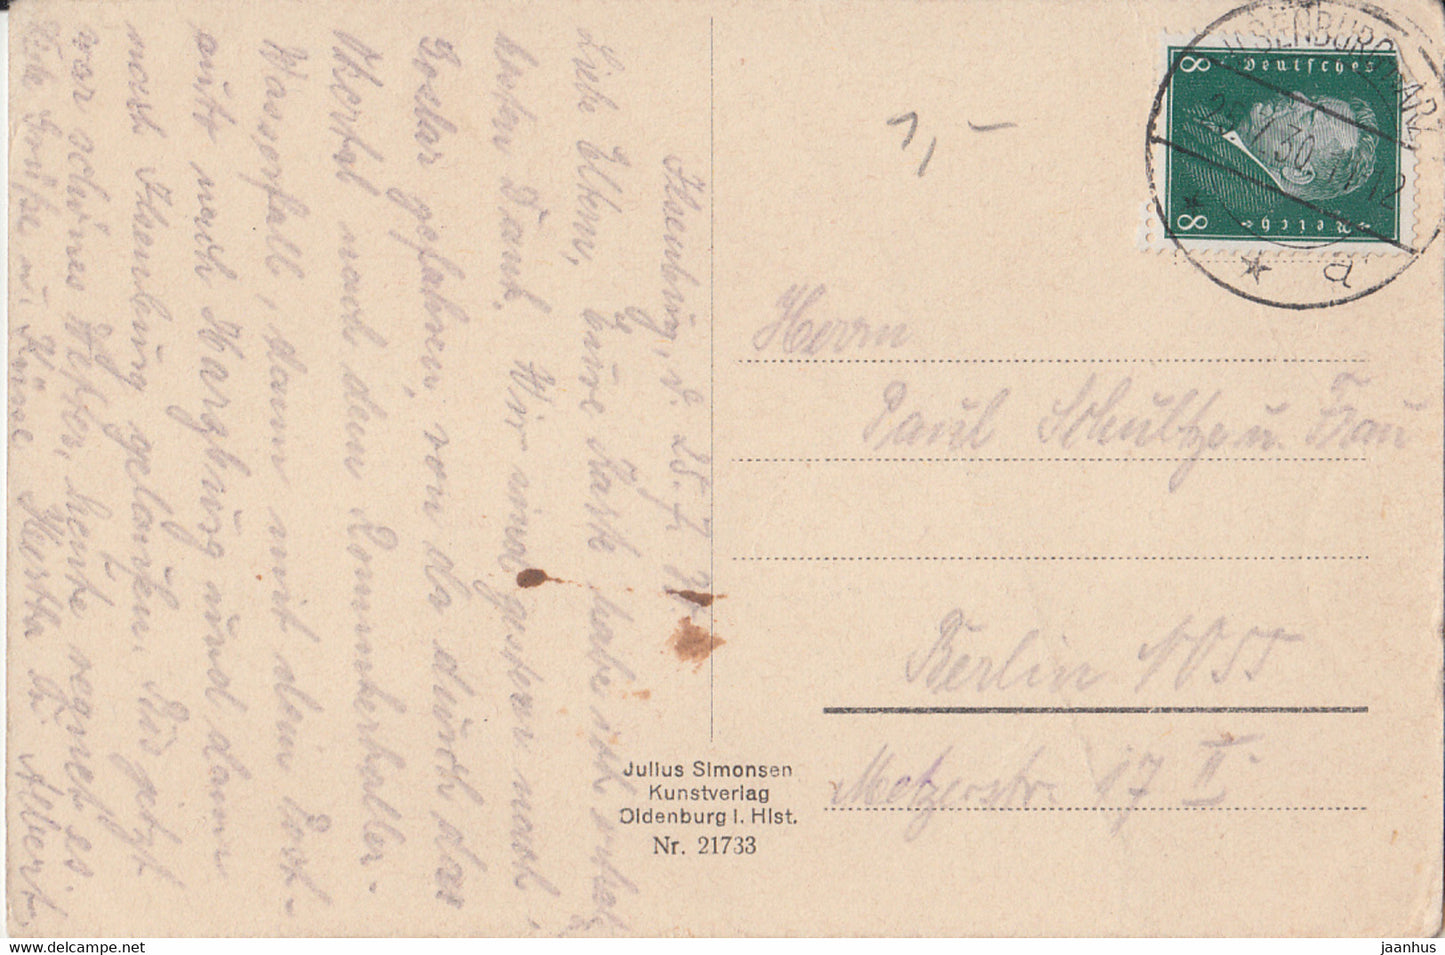 Ilsenburg, d. 25. 7.
Liebe Eltern, Eure Karte habe ich erhal,
besten Dank. Wir sind gestern nach
Goslar gefahren, von da durch das
Okertal nach dem Romkerhaller
Wasserfall, dann mit dem Post-
auto nach Harzburg und dann
nach Ilsenburg gelaufen. Bis jetzt
war schönes Wetter, heute regnet es.
Viele Grüße u. Küsse Hertha u. Albert
1,-
Deutsches
Reich
8
8
ILSENBURG HARZ
30. 11-12
* * a
Herrn
Paul Schultze u. Frau
Berlin NO 55
Metzerstr. 17 II
Julius Simonsen
Kunstverlag
Oldenburg i. Hlst.
Nr. 21733
jaanhus
www.delcampe.net